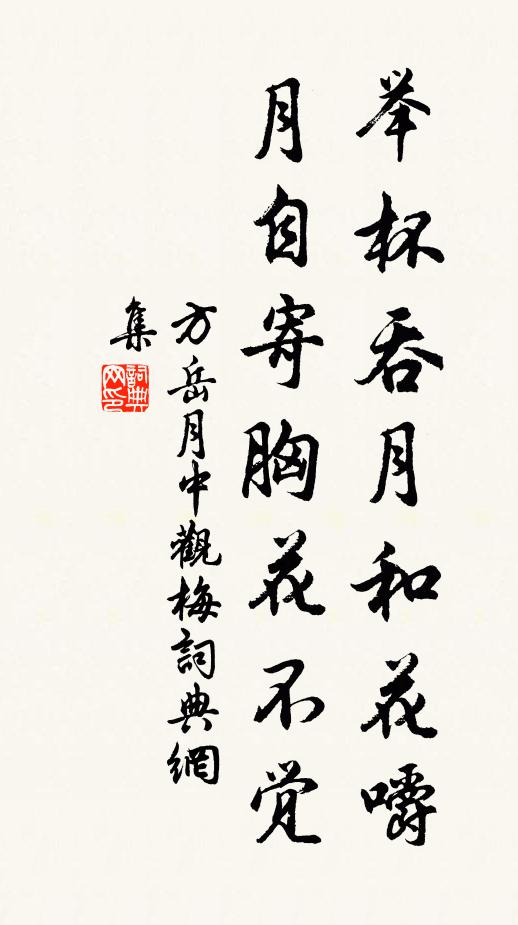 举杯吞月和花嚼
月自寄胸花不觉
方岳月中觀梅詞典網
集
詞典
网印